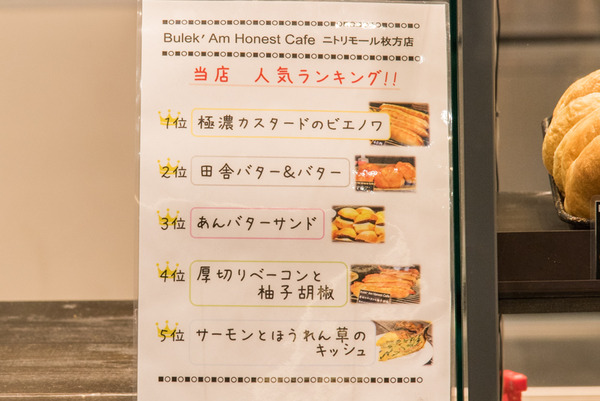 Bulek' Am Honest Cafe ニトリモール枚方店
当店 人気ランキング!!
1位 極濃カスタードのビエノワ
2位 田舎バター&バター
3位 あんバターサンド
4位 厚切りベーコンと
柚子胡椒
5位 サーモンとほうれん草の
キッシュ